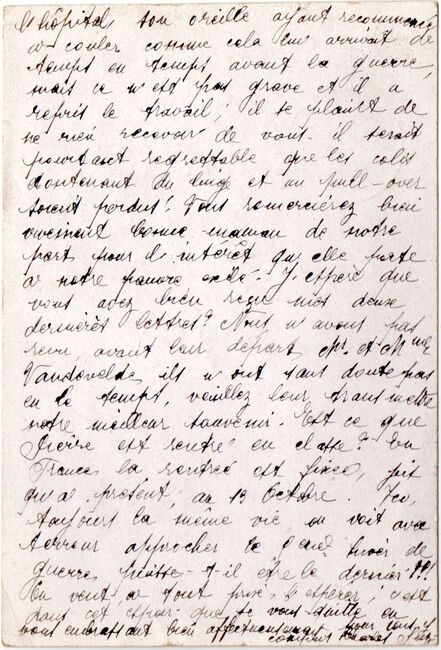 l'hôpital son oreille ayant recommencé
à couler comme cela lui arrivait de
temps en temps avant la guerre,
mais ce n'est pas grave et il a
repris le travail; il se plaint de
ne rien recevoir de vous. il serait
pourtant regrettable que les colis
contenant du linge et un pull-over
soient perdus! Vous remercierez bien
vivement bonne maman de notre
part pour l'intérêt qu'elle porte
à notre pauvre exilé. J'espère que
vous avez bien reçu mes deux
dernières lettres? Nous n'avons pas
revu, avant leur départ Mr. et Mme
Vandevelde, ils n'ont sans doute pas
eu le temps, veuillez leur transmettre
notre meilleur souvenir. Est ce que
Pierre est rentré en classe? En
France la rentrée est fixée,
qu'à présent, au 13 Octobre. Ici,
toujours la même vie, on voit avec
terreur approcher le hiver de
guerre puisse-t-il être le dernier!!!
On veut, à tout prix l'espérer; c'est
dans cet espoir que je vous quitte en
vous embrassant bien affectueusement pour tous